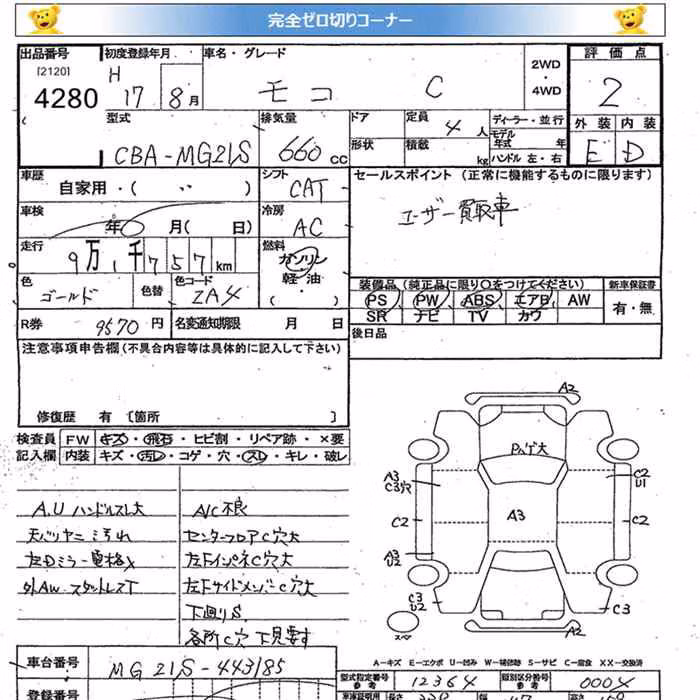 完全ゼロ切りコーナー
出品番号 [2120] 4280
初度登録年月 H 17 8月
車名・グレード モコ C
2WD・4WD
評価点 2
外装 E 内装 D
型式 CBA-MG21S
排気量 660cc
ドア 形状
定員 4人
積載 kg
ディーラー・並行
モデル年式 年
ハンドル 左・右
車歴 自家用・( )
シフト CAT
セールスポイント(正常に機能するものに限ります)
ユーザー買取車
車検 年 月( 日)
冷房 AC
走行 9万1千757km
燃料 ガソリン・軽油
色 ゴールド 色替
色コード ZA4
装備品(純正品に限り○をつけてください)
PS PW ABS エアB AW
SR ナビ TV カワ
新車保証書 有・無
R券 9570円
名変通知期限 月 日
後日品
注意事項申告欄(不具合内容等は具体的に記入して下さい)
修復歴 有[箇所 ]
検査員記入欄
FW キズ・飛石・ヒビ割・リペア跡・×要
内装 キズ・汚レ・コゲ・穴・スレ・キレ・破レ
A.U ハンドルスレ大
天バリヤニ汚れ
左Dミラー電格×
外AW スタットレスT
A/C不良
センターフロアC穴大
左FインパネC穴大
左FサイドメンバーC穴大
下廻りS
各所C穴 下見要す
A2
Pハゲ大
A3
C3穴
C2
U1
C2
A3
C2
A3
U2
C3
U2
C3
スペア
A2
A-キズ E-エクボ U-凹み W-補修跡 S-サビ C-腐食 XX-交換済
車台番号 MG21S-443185
型式指定番号 参考 12364
類別区分番号 参考 0004
登録番号
長さ